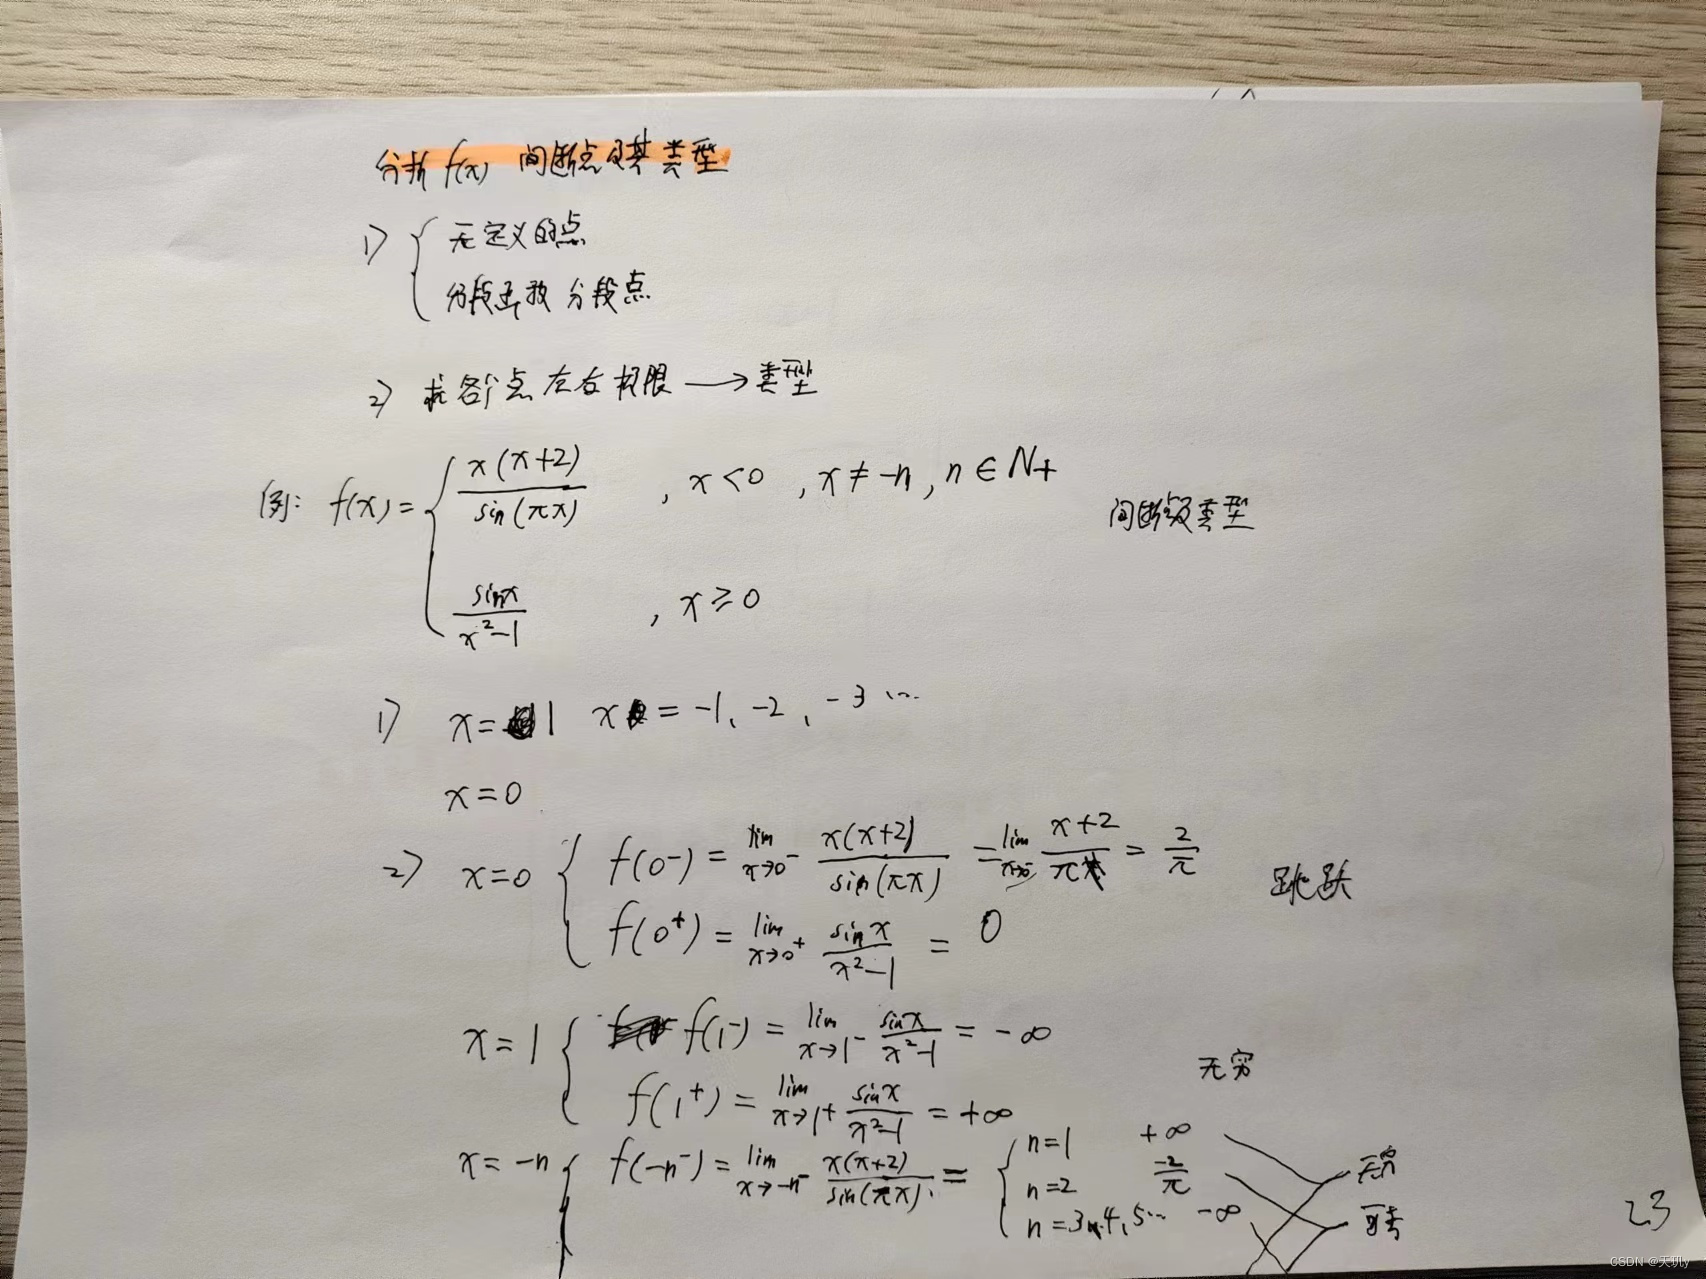 分析 f(x) 间断点及其类型
1) { 无定义的点
分段函数 分段点
2) 求各个点左右极限 → 类型
例: f(x) = { x(x+2) / sin(πx) , x<0 , x≠-n, n∈N+
间断点及类型
sinx / x²-1 , x≥0
1) x=1 x=-1, -2, -3 ...
x=0
2) x=0 { f(0-) = lim x→0- x(x+2) / sin(πx) = lim x→0- x+2 / π = 2/π
跳跃
f(0+) = lim x→0+ sinx / x²-1 = 0
x=1 { f(1-) = lim x→1- sinx / x²-1 = -∞
无穷
f(1+) = lim x→1+ sinx / x²-1 = +∞
x=-n { f(-n-) = lim x→-n- x(x+2) / sin(πx) = { n=1 +∞ 无穷
n=2 -2/π 可去
n=3,4,5... -∞
23
CSDN @天玑y